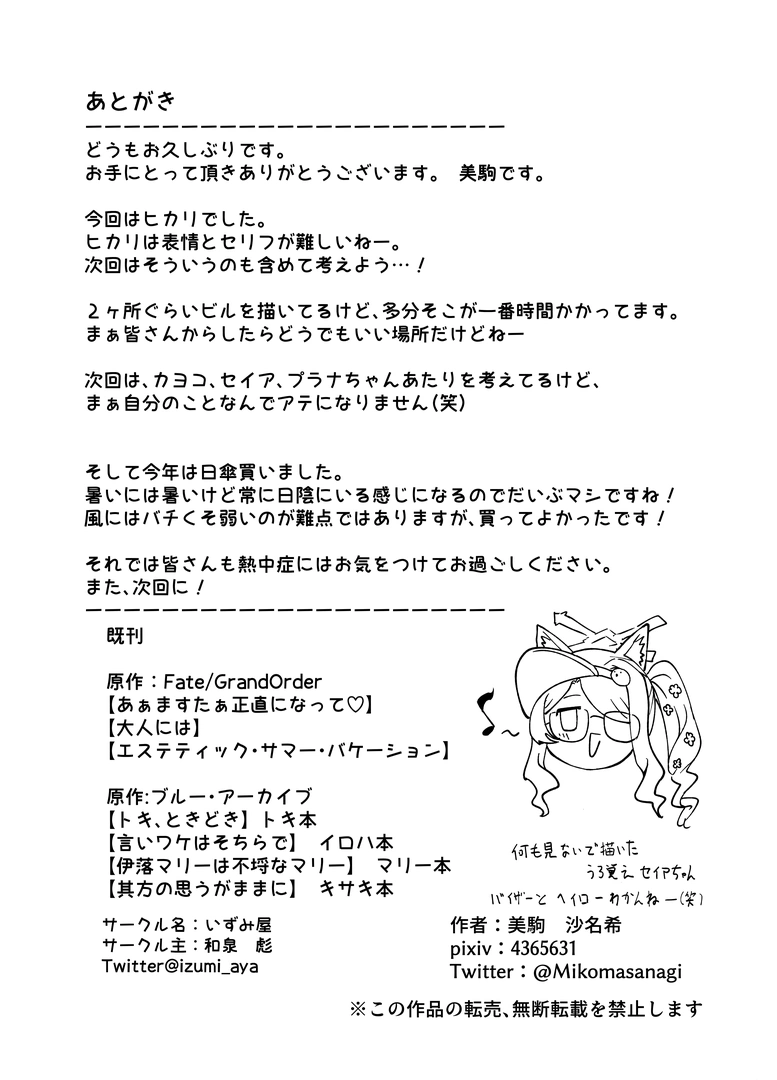 あとがき
ーーーーーーーーーーーーーーーーーーーーーー
どうもお久しぶりです。
お手にとって頂きありがとうございます。　美駒です。
今回はヒカリでした。
ヒカリは表情とセリフが難しいねー。
次回はそういうのも含めて考えよう…！
２ヶ所ぐらいビルを描いてるけど、多分そこが一番時間かかってます。
まぁ皆さんからしたらどうでもいい場所だけどねー
次回は、カヨコ、セイア、プラナちゃんあたりを考えてるけど、
まぁ自分のことなんでアテになりません(笑)
そして今年は日傘買いました。
暑いには暑いけど常に日陰にいる感じになるのでだいぶマシですね！
風にはバチくそ弱いのが難点ではありますが、買ってよかったです！
それでは皆さんも熱中症にはお気をつけてお過ごしください。
また、次回に！
ーーーーーーーーーーーーーーーーーーーーーー
既刊
原作：Fate/GrandOrder
【あぁますたぁ正直になって♡】
【大人には】
【エステティック・サマー・バケーション】
原作:ブルー・アーカイブ
【トキ、ときどき】トキ本
【言いワケはそちらで】　イロハ本
【伊落マリーは不埒なマリー】　マリー本
【其方の思うがままに】　キサキ本
何も見ないで描いた
うろ覚え セイアちゃん
バイザーと ヘイローわかんねー(笑)
サークル名：いずみ屋
サークル主：和泉　彪
Twitter@izumi_aya
作者：美駒　沙名希
pixiv：4365631
Twitter：@Mikomasanagi
※この作品の転売、無断転載を禁止します